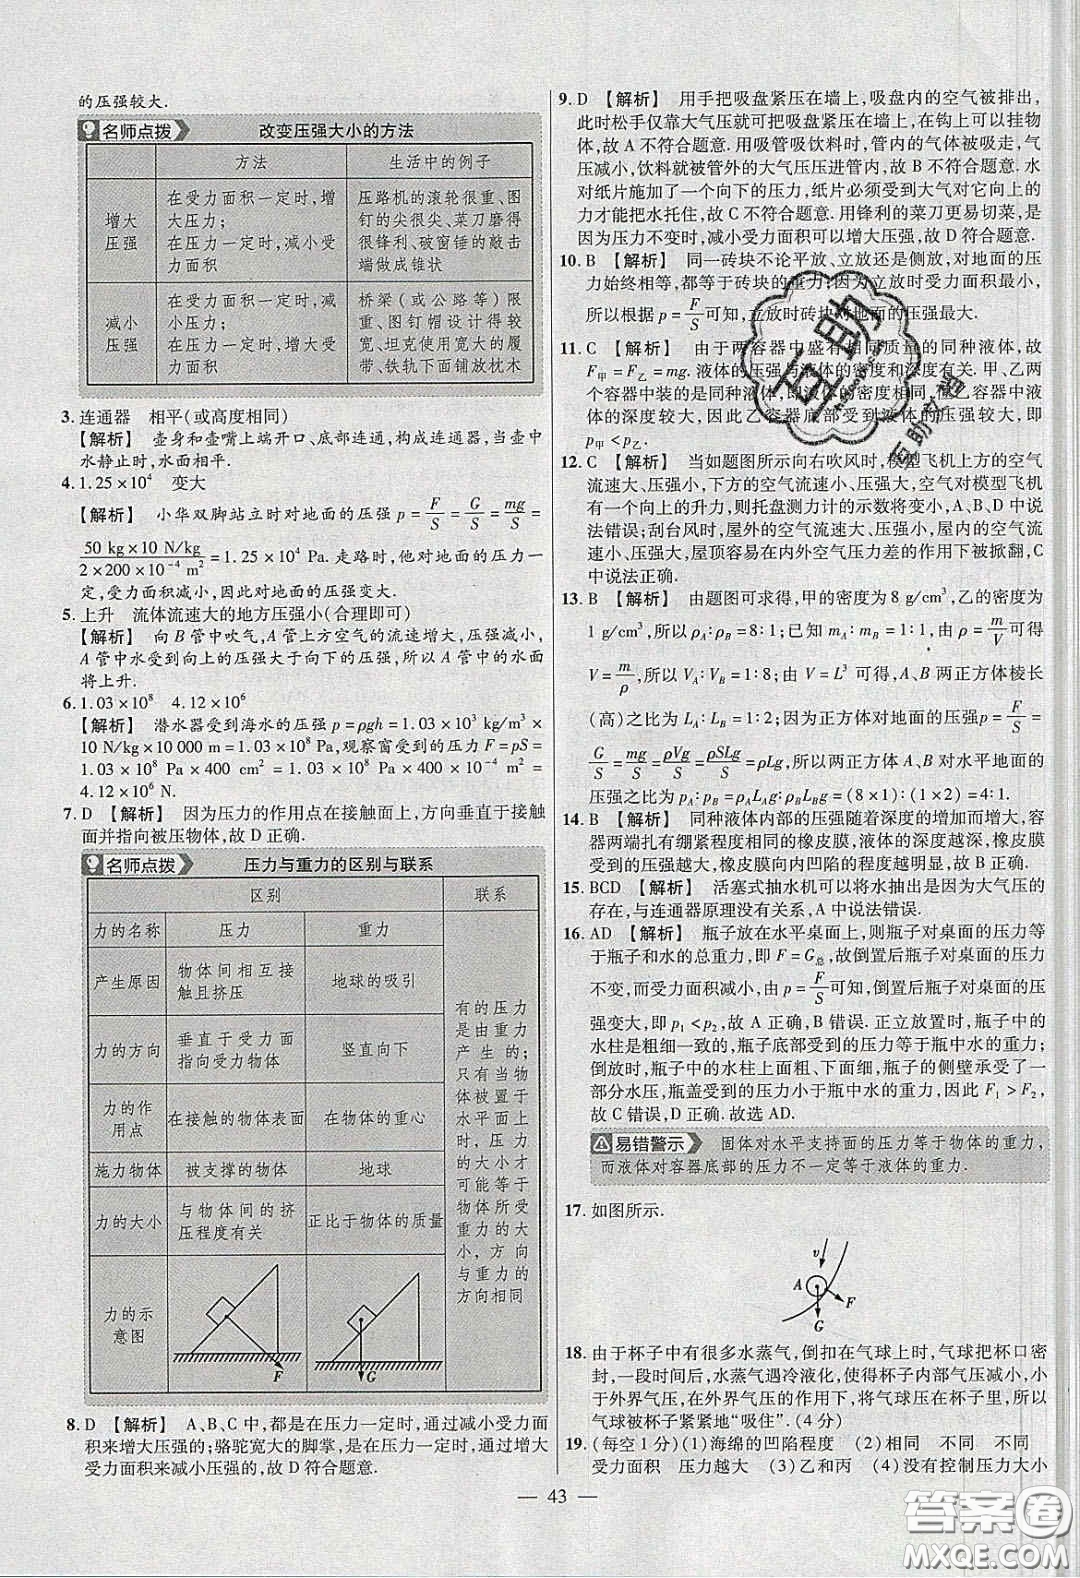 的压强较大.
名师点拨 改变压强大小的方法
方法 生活中的例子
增大压强
在受力面积一定时,增
大压力;
在压力一定时,减小受
力面积
压路机的滚轮很重、图
钉的尖很尖、菜刀磨得
很锋利、破窗锤的敲击
端做成锥状
减小压强
在受力面积一定时,减
小压力;
在压力一定时,增大受
力面积
桥梁(或公路等)限
重、图钉帽设计得较
宽、坦克使用宽大的履
带、铁轨下面铺放枕木
3. 连通器 相平(或高度相同)
【解析】 壶身和壶嘴上端开口、底部连通,构成连通器,当壶中
水静止时,水面相平.
4. 1.25×10⁴ 变大
【解析】 小华双脚站立时对地面的压强 p = F/S = G/S = mg/S =
50 kg×10 N/kg / 2×200×10⁻⁴ m² = 1.25×10⁴ Pa. 走路时,他对地面的压力一
定,受力面积减小,因此对地面的压强变大.
5. 上升 流体流速大的地方压强小(合理即可)
【解析】 向 B 管中吹气,A 管上方空气的流速增大,压强减小,
A 管中水受到向上的压强大于向下的压强,所以 A 管中的水面
将上升.
6. 1.03×10⁸ 4.12×10⁶
【解析】 潜水器受到海水的压强 p=ρgh=1.03×10³ kg/m³×
10 N/kg×10 000 m=1.03×10⁸ Pa,观察窗受到的压力 F=pS=
1.03×10⁸ Pa×400 cm²=1.03×10⁸ Pa×400×10⁻⁴ m²=
4.12×10⁶ N.
7. D 【解析】 因为压力的作用点在接触面上,方向垂直于接触
面并指向被压物体,故 D 正确.
名师点拨 压力与重力的区别与联系
区别 联系
力的名称 压力 重力
产生原因 物体间相互接触且挤压 地球的吸引
力的方向 垂直于受力面指向受力物体 竖直向下
力的作用点 在接触的物体表面 在物体的重心
施力物体 被支撑的物体 地球
力的大小 与物体间的挤压程度有关 正比于物体的质量
力的示意图 F G
有的压力
是由重力
产生的;
只有当物
体被放置于
水平面上
时,压力
才可能等于
物体所受
重力的大
小,方向
与重力的
方向相同
8. D 【解析】 A、B、C 中,都是在压力一定时,通过减小受力面
积来增大压强的;骆驼宽大的脚掌,是在压力一定时,通过增大
受力面积来减小压强的,故 D 符合题意.
9. D 【解析】 用手把吸盘紧压在墙上,吸盘内的空气被排出,
此时松手仅靠大气压就可把吸盘紧压在墙上,在钩上可以挂物
体,故 A 不符合题意. 用吸管吸饮料时,管内的气体被吸入口,气
压减小,饮料就被管外的大气压压进管内,故 B 不符合题意. 水
对纸片施加了一个向下的压力,纸片必须受到大气对它向上的
力才能把水托住,故 C 不符合题意. 用锋利的菜刀更易切菜,是
因为压力不变时,减小受力面积可以增大压强,故 D 符合题意.
10. B 【解析】 同一砖块不论平放、立放还是侧放,对地面的压
力始终相等,都等于砖块的重力;立放时受力面积最小,
所以根据 p = F/S 可知,立放时砖块对地面的压强最大.
11. C 【解析】 由于两容器中盛有相同质量的同种液体,故
F甲=F乙=mg. 液体的压强与液体的密度和深度有关. 甲、乙
两个容器中装的是同种液体,即液体的密度相同,但乙容器中
液体的深度较大,因此乙容器底部受到液体的压强较大,即
p甲<p乙.
12. C 【解析】 当如题图所示向右吹风时,模型飞机上方的空气
流速大、压强小,下方的空气流速小、压强大,空气对模型飞机
有一个向上的升力,则托盘测力计的示数将变小,A、B、D 中说
法错误;刮台风时,屋外的空气流速大、压强小,屋内的空气流
速小、压强大,屋顶容易在内外空气压力差的作用下被掀翻,C
中说法正确.
13. B 【解析】 由题图可求得,甲的密度为 8 g/cm³,乙的密度为
1 g/cm³,所以 ρA∶ρB=8∶1;已知 mA∶mB=1∶1,由 ρ=m/V 可得
V=m/ρ,所以 VA∶VB=1∶8;由 V=L³ 可得,A、B 两正方体棱长
(高)之比为 LA∶LB=1∶2;因为正方体对地面的压强 p=F/S=
G/S=mg/S=ρVg/S=ρSLg/S=ρLg,所以两正方体 A、B 对水平地面的
压强之比为 pA∶pB=ρALAg∶ρBLBg=(8×1)∶(1×2)=4∶1.
14. B 【解析】 同种液体内部的压强随着深度的增加而增大,容
器两端扎有绷紧程度相同的橡皮膜,液体的深度越深,橡皮膜
受到的压强越大,橡皮膜向内凹陷的程度明显,故选 B.
15. BCD 【解析】 活塞式抽水机可以将水抽出是因为大气压的
存在,与连通器原理没有关系,A 中说法错误.
16. AD 【解析】 瓶子放在水平桌面上,则瓶子对桌面的压力等
于瓶子和水的总重力,即 F=G总,故倒置后瓶子对桌面的压力
不变,而受力面积减小,由 p=F/S 可知,倒置后瓶子对桌面的压
强变大,即 p₁<p₂,故 A 正确,B 错误. 正立放置时,瓶子中的
水柱是粗细一致的,瓶子底部受到的压力等于瓶中水的重力;
倒置时,瓶子中的水柱上面粗、下面细,瓶子的侧壁承受了一
部分水压,瓶盖受到的压力小于瓶中水的重力,因此 F₁>F₂,
故 C 错误,D 正确. 故选 AD.
易错警示 固体对水平支持面的压力等于物体的重力,
而液体对容器底部的压力不一定等于液体的重力.
17. 如图所示.
v
A
F
G
18. 由于杯子中有很多水蒸气,倒扣在气球上时,气球把杯口密
封,一段时间后,水蒸气遇冷液化,使得杯子内气压减小,小
于外界气压,在外界气压的作用下,将气球压在杯子里,所以
气球被杯子紧紧地“吸住”. (4 分)
19. (每空 1 分)(1)海绵的凹陷程度 (2)相同 不同 不同
受力面积 压力越大 (3)乙和丙 (4)没有控制压力大小
— 43 —
互助
互助文借
答案圈
MXQE.COM